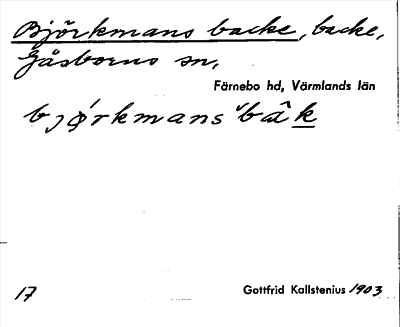 Björkmans backe, backe,
Gåsborns sn,
Färnebo hd, Värmlands län
bjǿrkmansˇbâk
17
Gottfrid Kallstenius 1903